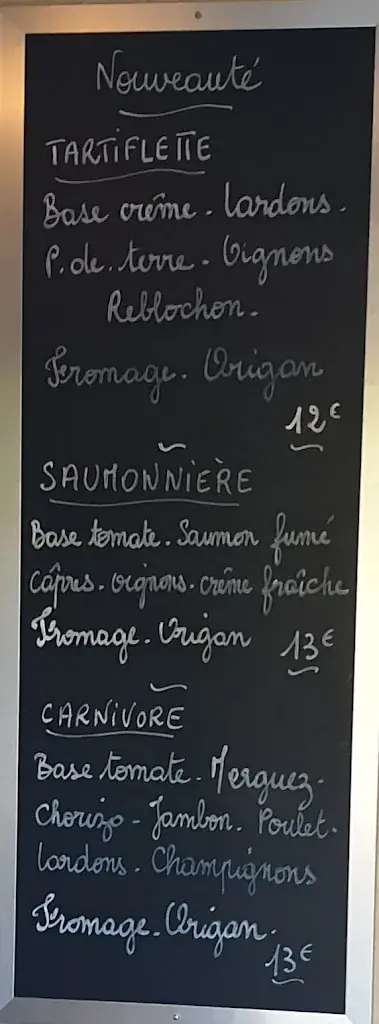 Nouveauté
TARTIFLETTE
Base crème. Lardons.
P. de. terre. Oignons
Reblochon.
Fromage. Origan
12€
SAUMONNIÈRE
Base tomate. Saumon fumé
Câpres. oignons. crème fraîche
Fromage. Origan 13€
CARNIVORE
Base tomate. Merguez.
Chorizo - Jambon. Poulet.
Lardons. Champignons
Fromage. Origan.
13€